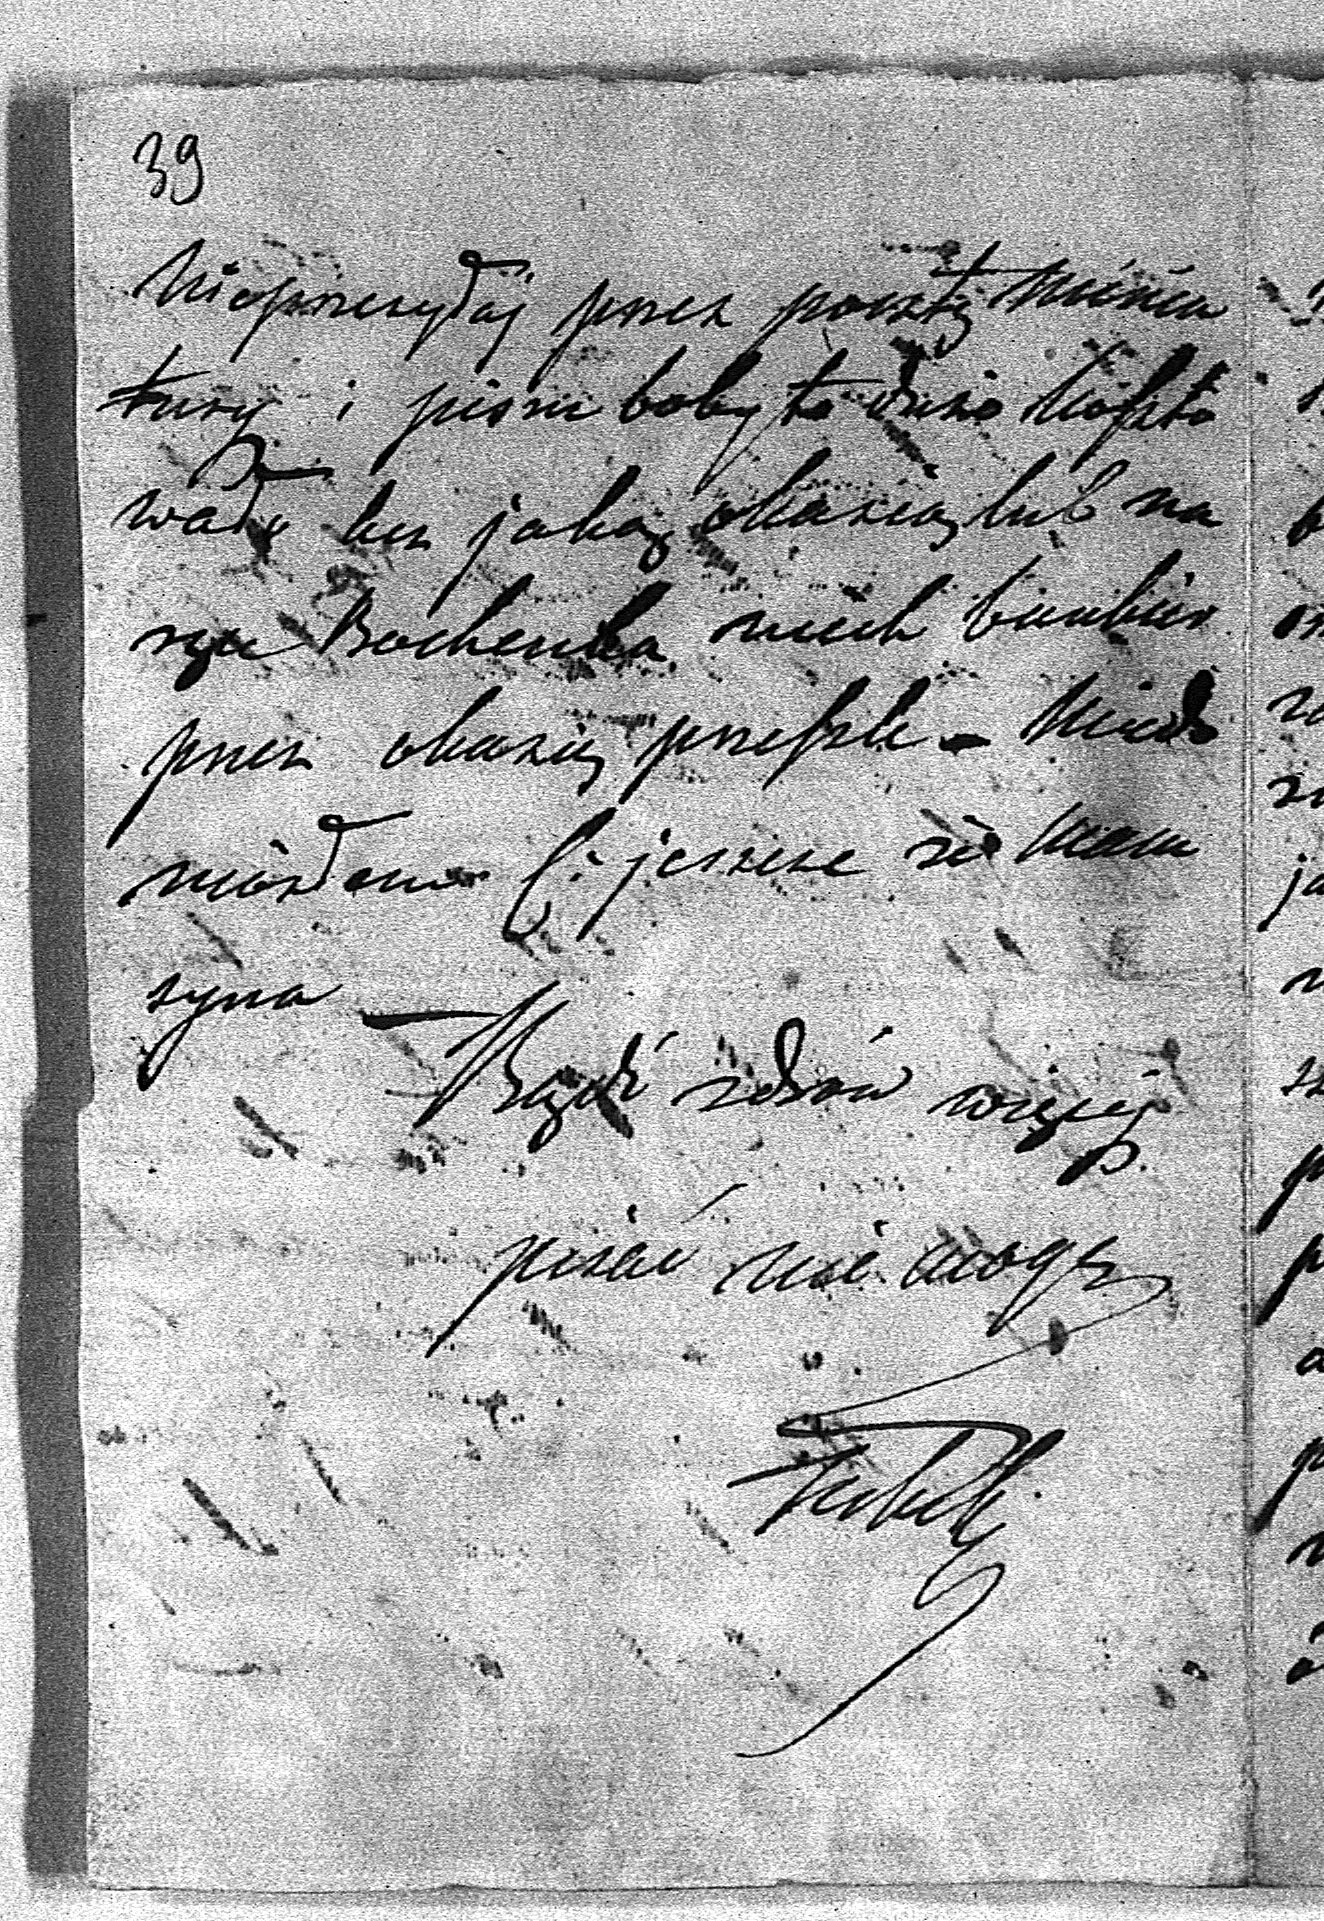 39
Nieprzesyłaj przez pocztę minia
tury i pism boby to dużo koszto
wało bez jaką okazią lub na
ręce Bochenka niech bankier
przez okazię przeszle — Nieds
niósłem (: jeszcze że mam
syna —
Bądź zdrów więcej
pisać nie mogę